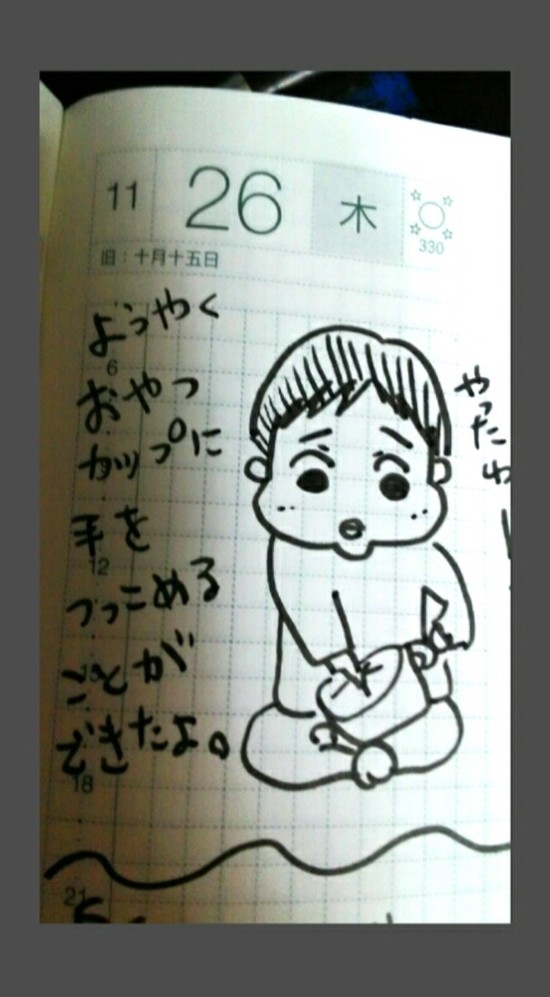 11 26 木
330
旧:十月十五日
ようやく
6
おやつ
カップに
手を
12
つっこめる
ことが
できたよ。
18
21
やったわ